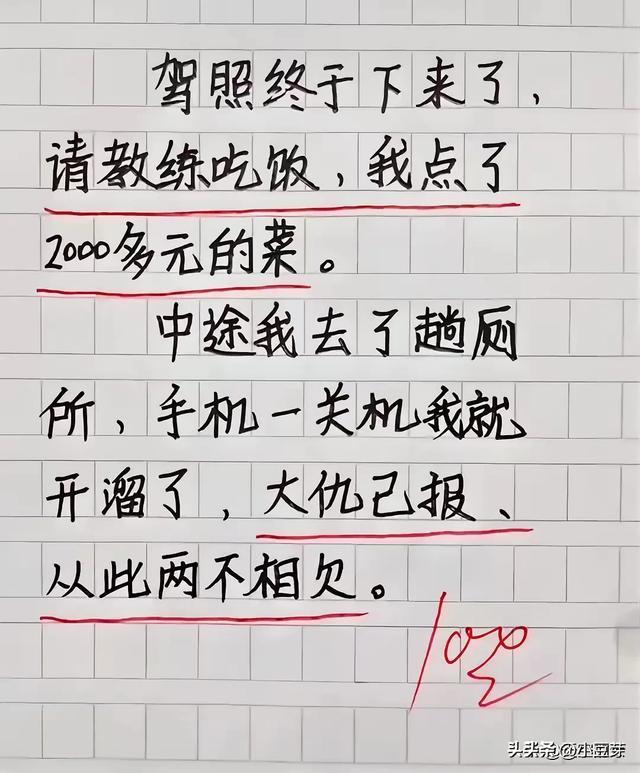 驾照终于下来了,
请教练吃饭,我点了
2000多元的菜。
中途我去了趟厕
所,手机一关机我就
开溜了,大仇已报、
从此两不相欠。
100
头条@小豆芽